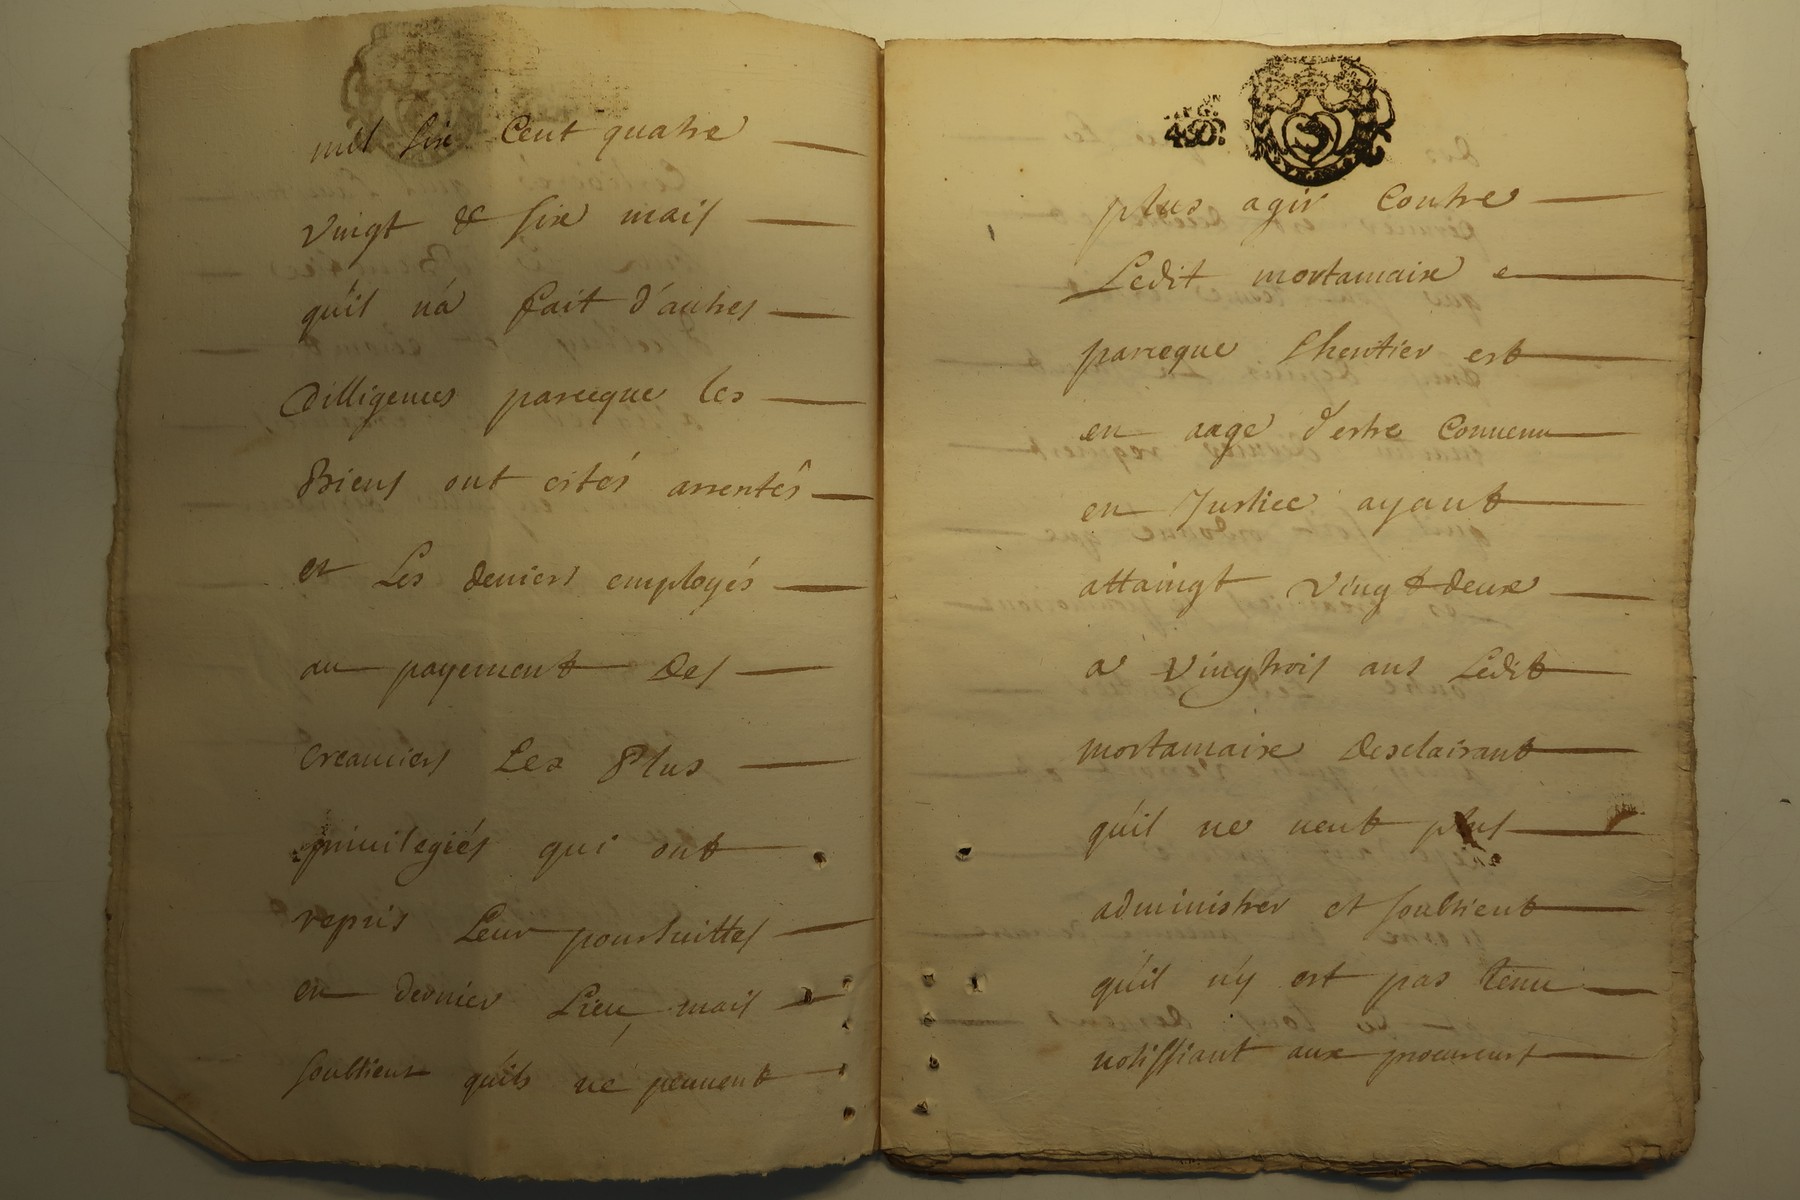 mil six Cent quatre
vingt & six mais
qu'il n'a fait d'autres
Dilligences parceque les
Biens ont estés arrentés
et Les deniers employés
au payement Des
creanciers Les Plus
privilegiés qui ont
repris Leur poursuittes
en dernier Lieu, mais
soubtient qu'ils ne peuuent
plus agir Contre
Ledit mortamaire
parceque Lheritier est
en aage d'estre Conuenu
en Justice ayant
attaingt Vingt deux
a Vingtrois ans Ledit
mortamaire Desclairant
qu'il ne ueut plus
administrer et soubtient
qu'il n'y est pas tenu
notiffiant aux procureurs